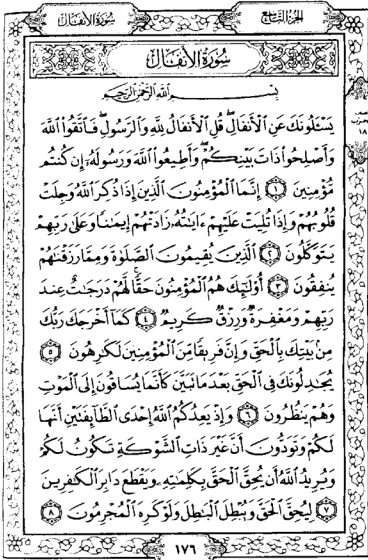 سُورَةُ الأَنفَالِ
الجُزْءُ التَّاسِعُ
سُورَةُ الأَنفَالِ
بِسْمِ ٱللَّهِ ٱلرَّحْمَٰنِ ٱلرَّحِيمِ
يَسْـَٔلُونَكَ عَنِ ٱلْأَنفَالِ ۖ قُلِ ٱلْأَنفَالُ لِلَّهِ وَٱلرَّسُولِ ۖ فَٱتَّقُوا۟ ٱللَّهَ
وَأَصْلِحُوا۟ ذَاتَ بَيْنِكُمْ ۖ وَأَطِيعُوا۟ ٱللَّهَ وَرَسُولَهُۥٓ إِن كُنتُم
مُّؤْمِنِينَ ١ إِنَّمَا ٱلْمُؤْمِنُونَ ٱلَّذِينَ إِذَا ذُكِرَ ٱللَّهُ وَجِلَتْ
قُلُوبُهُمْ وَإِذَا تُلِيَتْ عَلَيْهِمْ ءَايَٰتُهُۥ زَادَتْهُمْ إِيمَٰنًا وَعَلَىٰ رَبِّهِمْ
يَتَوَكَّلُونَ ٢ ٱلَّذِينَ يُقِيمُونَ ٱلصَّلَوٰةَ وَمِمَّا رَزَقْنَٰهُمْ
يُنفِقُونَ ٣ أُو۟لَٰٓئِكَ هُمُ ٱلْمُؤْمِنُونَ حَقًّا ۚ لَّهُمْ دَرَجَٰتٌ عِندَ
رَبِّهِمْ وَمَغْفِرَةٌ وَرِزْقٌ كَرِيمٌ ٤ كَمَآ أَخْرَجَكَ رَبُّكَ
مِنۢ بَيْتِكَ بِٱلْحَقِّ وَإِنَّ فَرِيقًا مِّنَ ٱلْمُؤْمِنِينَ لَكَٰرِهُونَ ٥
يُجَٰدِلُونَكَ فِى ٱلْحَقِّ بَعْدَ مَا تَبَيَّنَ كَأَنَّمَا يُسَاقُونَ إِلَى ٱلْمَوْتِ
وَهُمْ يَنظُرُونَ ٦ وَإِذْ يَعِدُكُمُ ٱللَّهُ إِحْدَى ٱلطَّآئِفَتَيْنِ أَنَّهَا
لَكُمْ وَتَوَدُّونَ أَنَّ غَيْرَ ذَاتِ ٱلشَّوْكَةِ تَكُونُ لَكُمْ
وَيُرِيدُ ٱللَّهُ أَن يُحِقَّ ٱلْحَقَّ بِكَلِمَٰتِهِۦ وَيَقْطَعَ دَابِرَ ٱلْكَٰفِرِينَ
٧ لِيُحِقَّ ٱلْحَقَّ وَيُبْطِلَ ٱلْبَٰطِلَ وَلَوْ كَرِهَ ٱلْمُجْرِمُونَ ٨
١٧٦